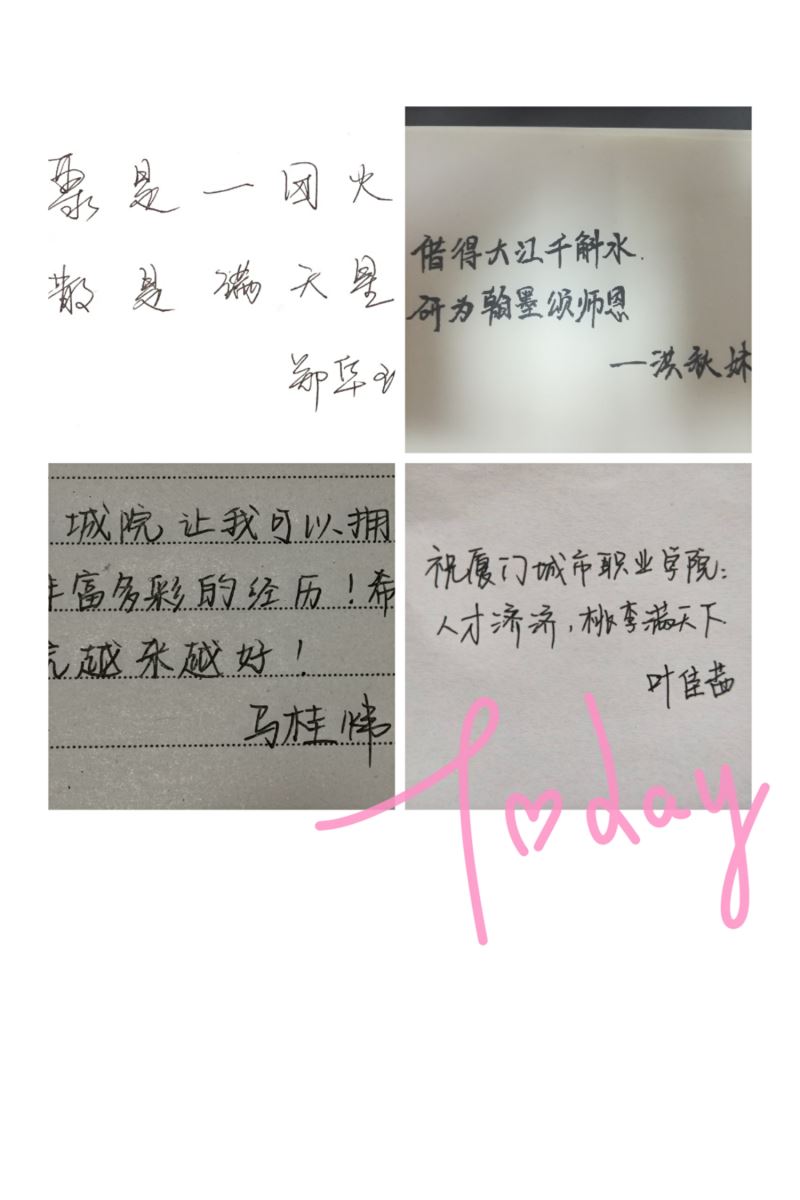 聚是一团火
散是满天星
郑华
借得大江千斛水
研为翰墨颂师恩
—洪秋妹
城院让我可以拥
丰富多彩的经历！希
院越来越好！
马桂炜
祝厦门城市职业学院：
人才济济，桃李满天下
叶佳茜
Today